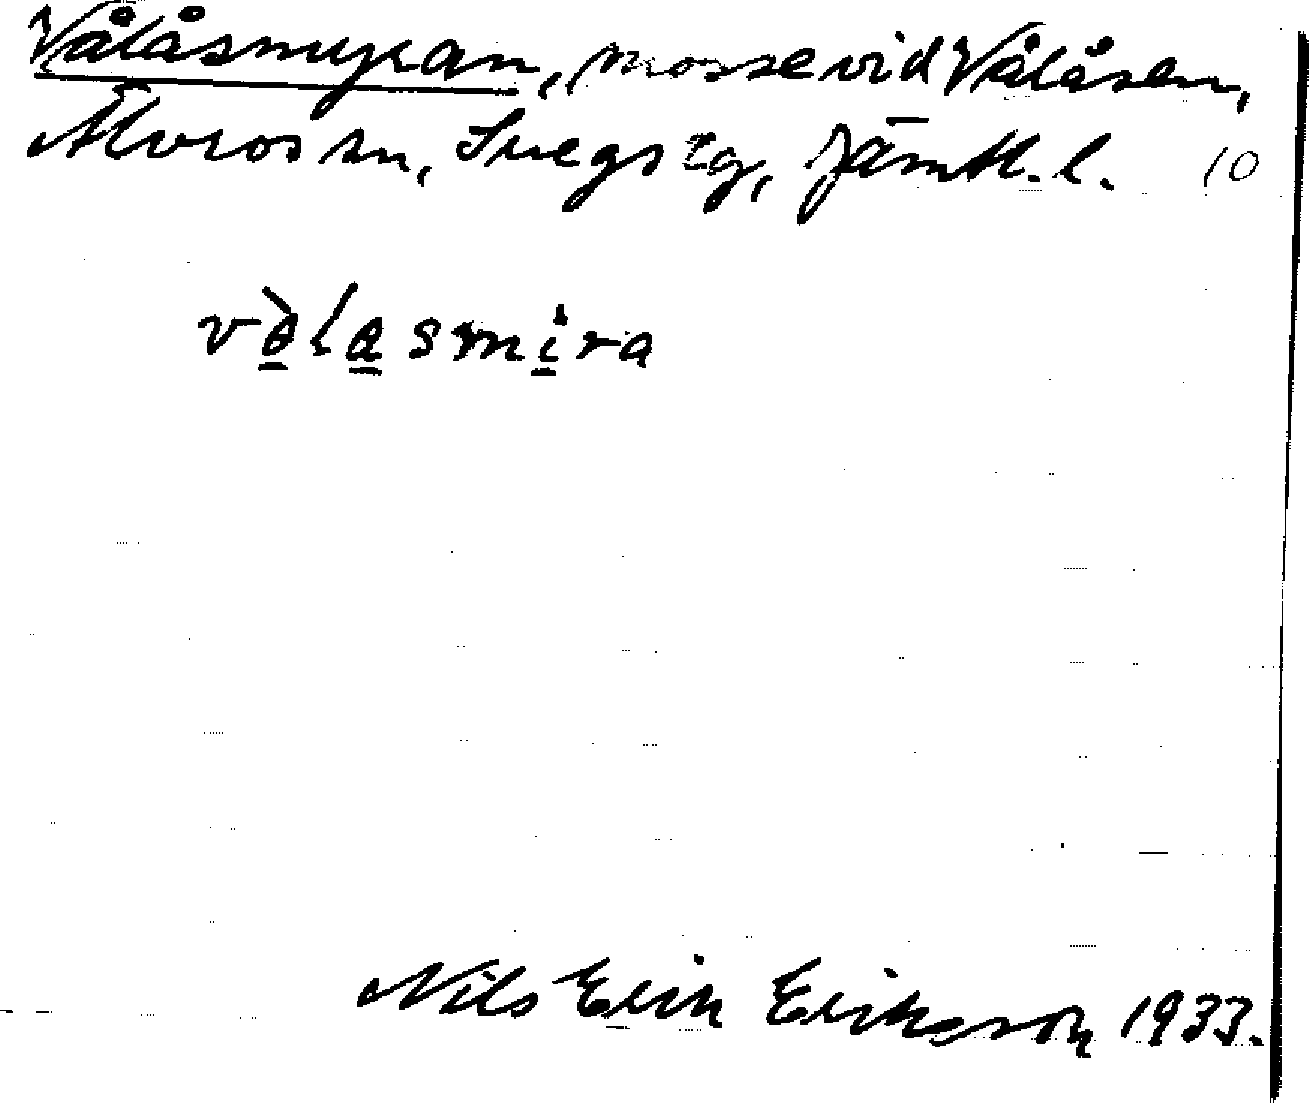 Vålåsmyran, mosse vid Vålåsen,
Älvros sn, Svegs tg, Jämtl. l. 10
vòlasmira
Nils Erik Eriksson 1933.